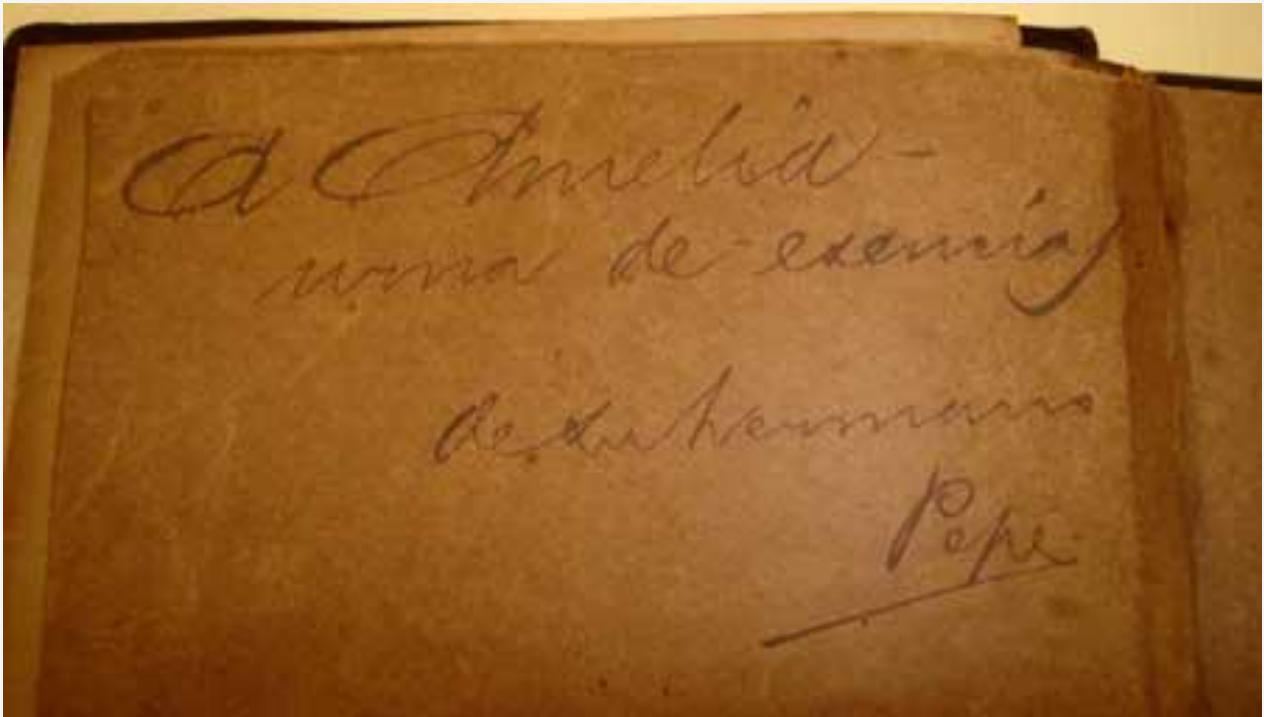 A Amelia -
urna de esencias
de su hermano
Pepe